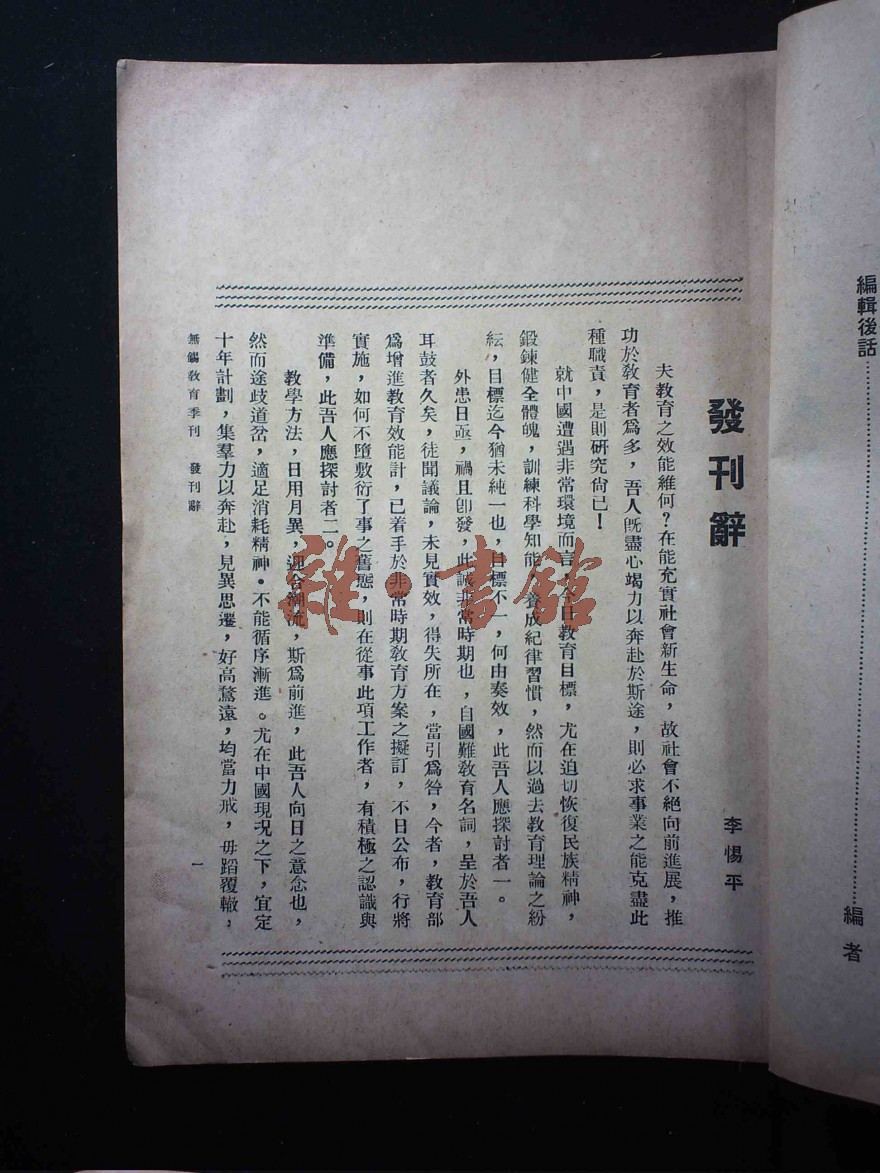 編輯後話……………………編者
發刊辭
李惕平
夫教育之效能維何？在能充實社會新生命，故社會不絕向前進展，推
功於教育者爲多，吾人旣盡心竭力以奔赴於斯途，則必求事業之能克盡此
種職責，是則研究尙已！
就中國遭遇非常環境而言，今日教育目標，尤在迫切恢復民族精神，
鍛鍊健全體魄，訓練科學知能，養成紀律習慣，然而以過去教育理論之紛
紜，目標迄今猶未純一也，目標不一，何由奏效，此吾人應探討者一。
外患日亟，禍且卽發，此誠非常時期也，自國難教育名詞，呈於吾人
耳鼓者久矣，徒聞議論，未見實效，得失所在，當引爲咎，今者，教育部
爲增進教育效能計，已着手於非常時期教育方案之擬訂，不日公布，行將
實施，如何不墮敷衍了事之舊態，則在從事此項工作者，有積極之認識與
準備，此吾人應探討者二。
教學方法，日用月異，迎合潮流，斯爲前進，此吾人向日之意念也，
然而途歧道岔，適足消耗精神．不能循序漸進。尤在中國現況之下，宜定
十年計劃，集羣力以奔赴，見異思遷，好高騖遠，均當力戒，毋蹈覆轍，
無錫教育季刊　發刊辭
一
雜·書館